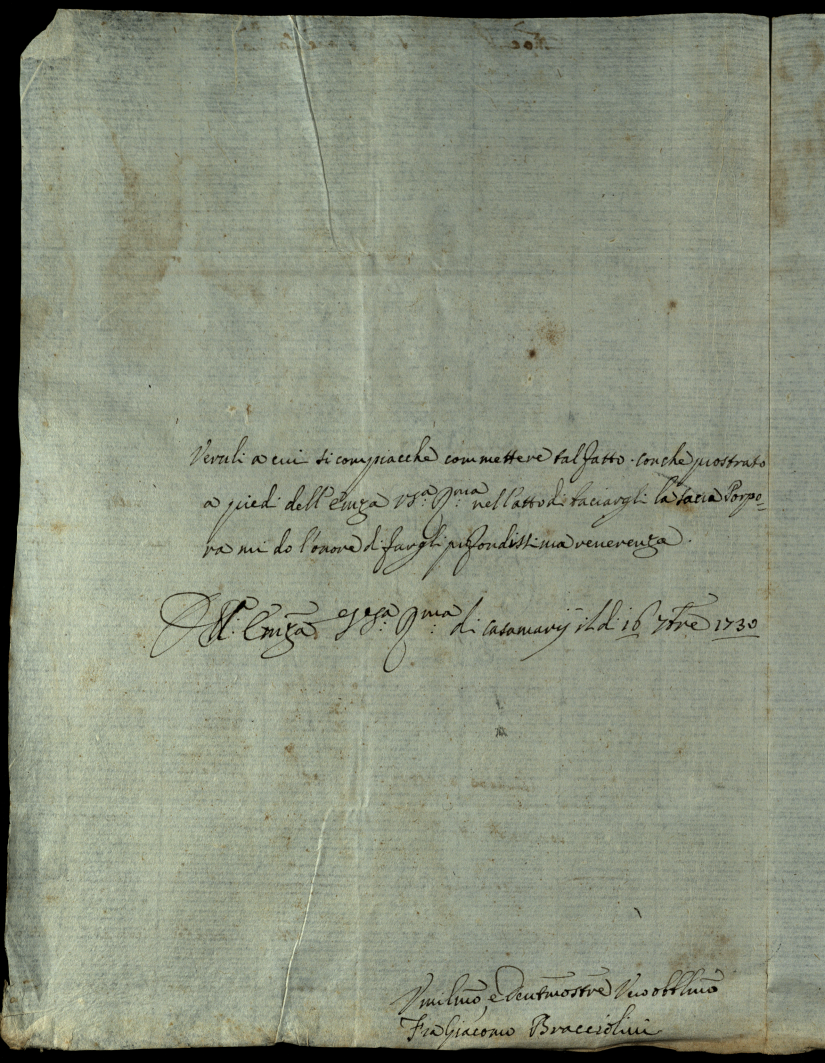 Veruli a cui si compiacche commettere tal fatto. con che prostrato
a piedi dell'Emza Vsa. Rma. nell'atto di baciargli la sacra Porpo=
ra mi do l'onore di fargli profondissima reverenza.
Dell. Emza Vsa. Rma. di casamarij il di 16 7bre 1730
Vmilmo e obblmo
Fra Giacomo Bracciolini